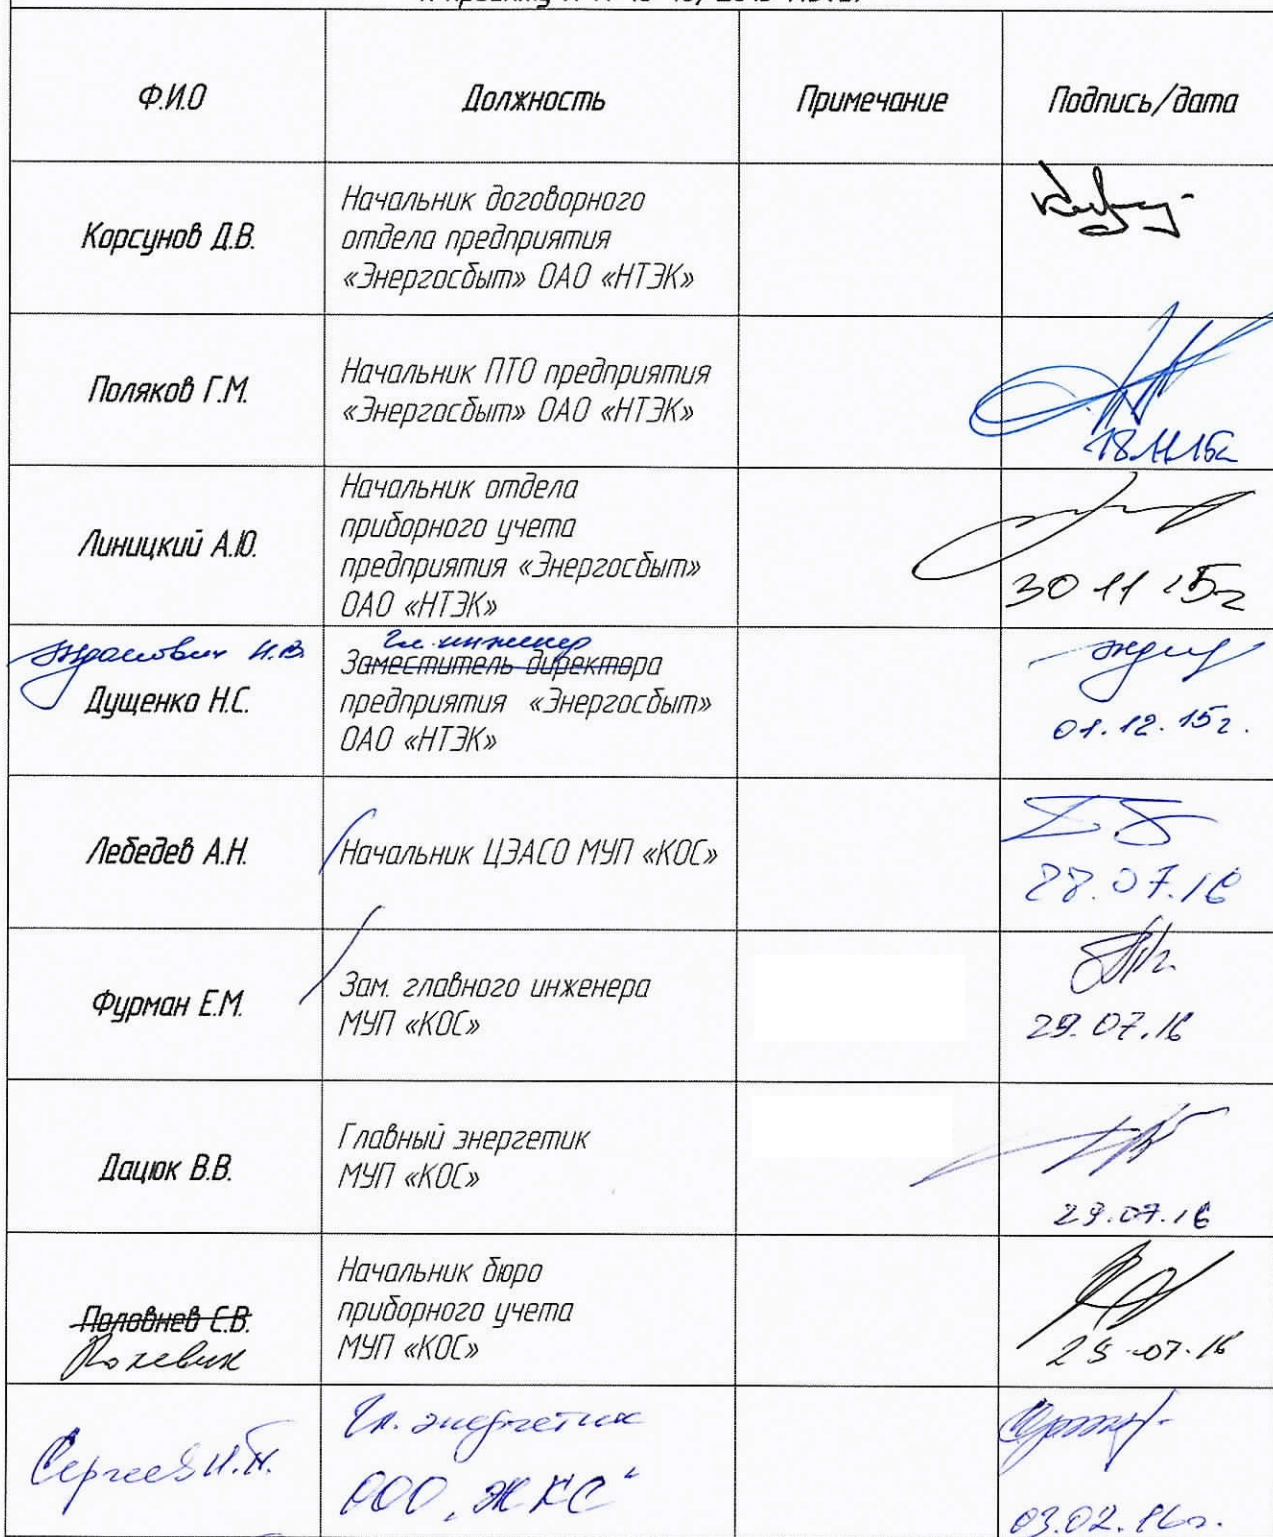 Ф.И.О
Должность
Примечание
Подпись/дата
Корсунов Д.В.
Начальник договорного
отдела предприятия
«Энергосбыт» ОАО «НТЭК»
Поляков Г.М.
Начальник ПТО предприятия
«Энергосбыт» ОАО «НТЭК»
18.11.15г
Линицкий А.Ю.
Начальник отдела
приборного учета
предприятия «Энергосбыт»
ОАО «НТЭК»
30 11 15г
И.В.
Дущенко Н.С.
Гл. инженер
Заместитель директора
предприятия «Энергосбыт»
ОАО «НТЭК»
01.12.15г.
Лебедев А.Н.
Начальник ЦЭАСО МУП «КОС»
28.07.16
Фурман Е.М.
Зам. главного инженера
МУП «КОС»
29.07.16
Дацюк В.В.
Главный энергетик
МУП «КОС»
29.07.16
Половнев С.В.
Начальник бюро
приборного учета
МУП «КОС»
07.16
Сергеев И.Н.
Гл. энергетик
ООО "ЖКС"
03.02.16г.